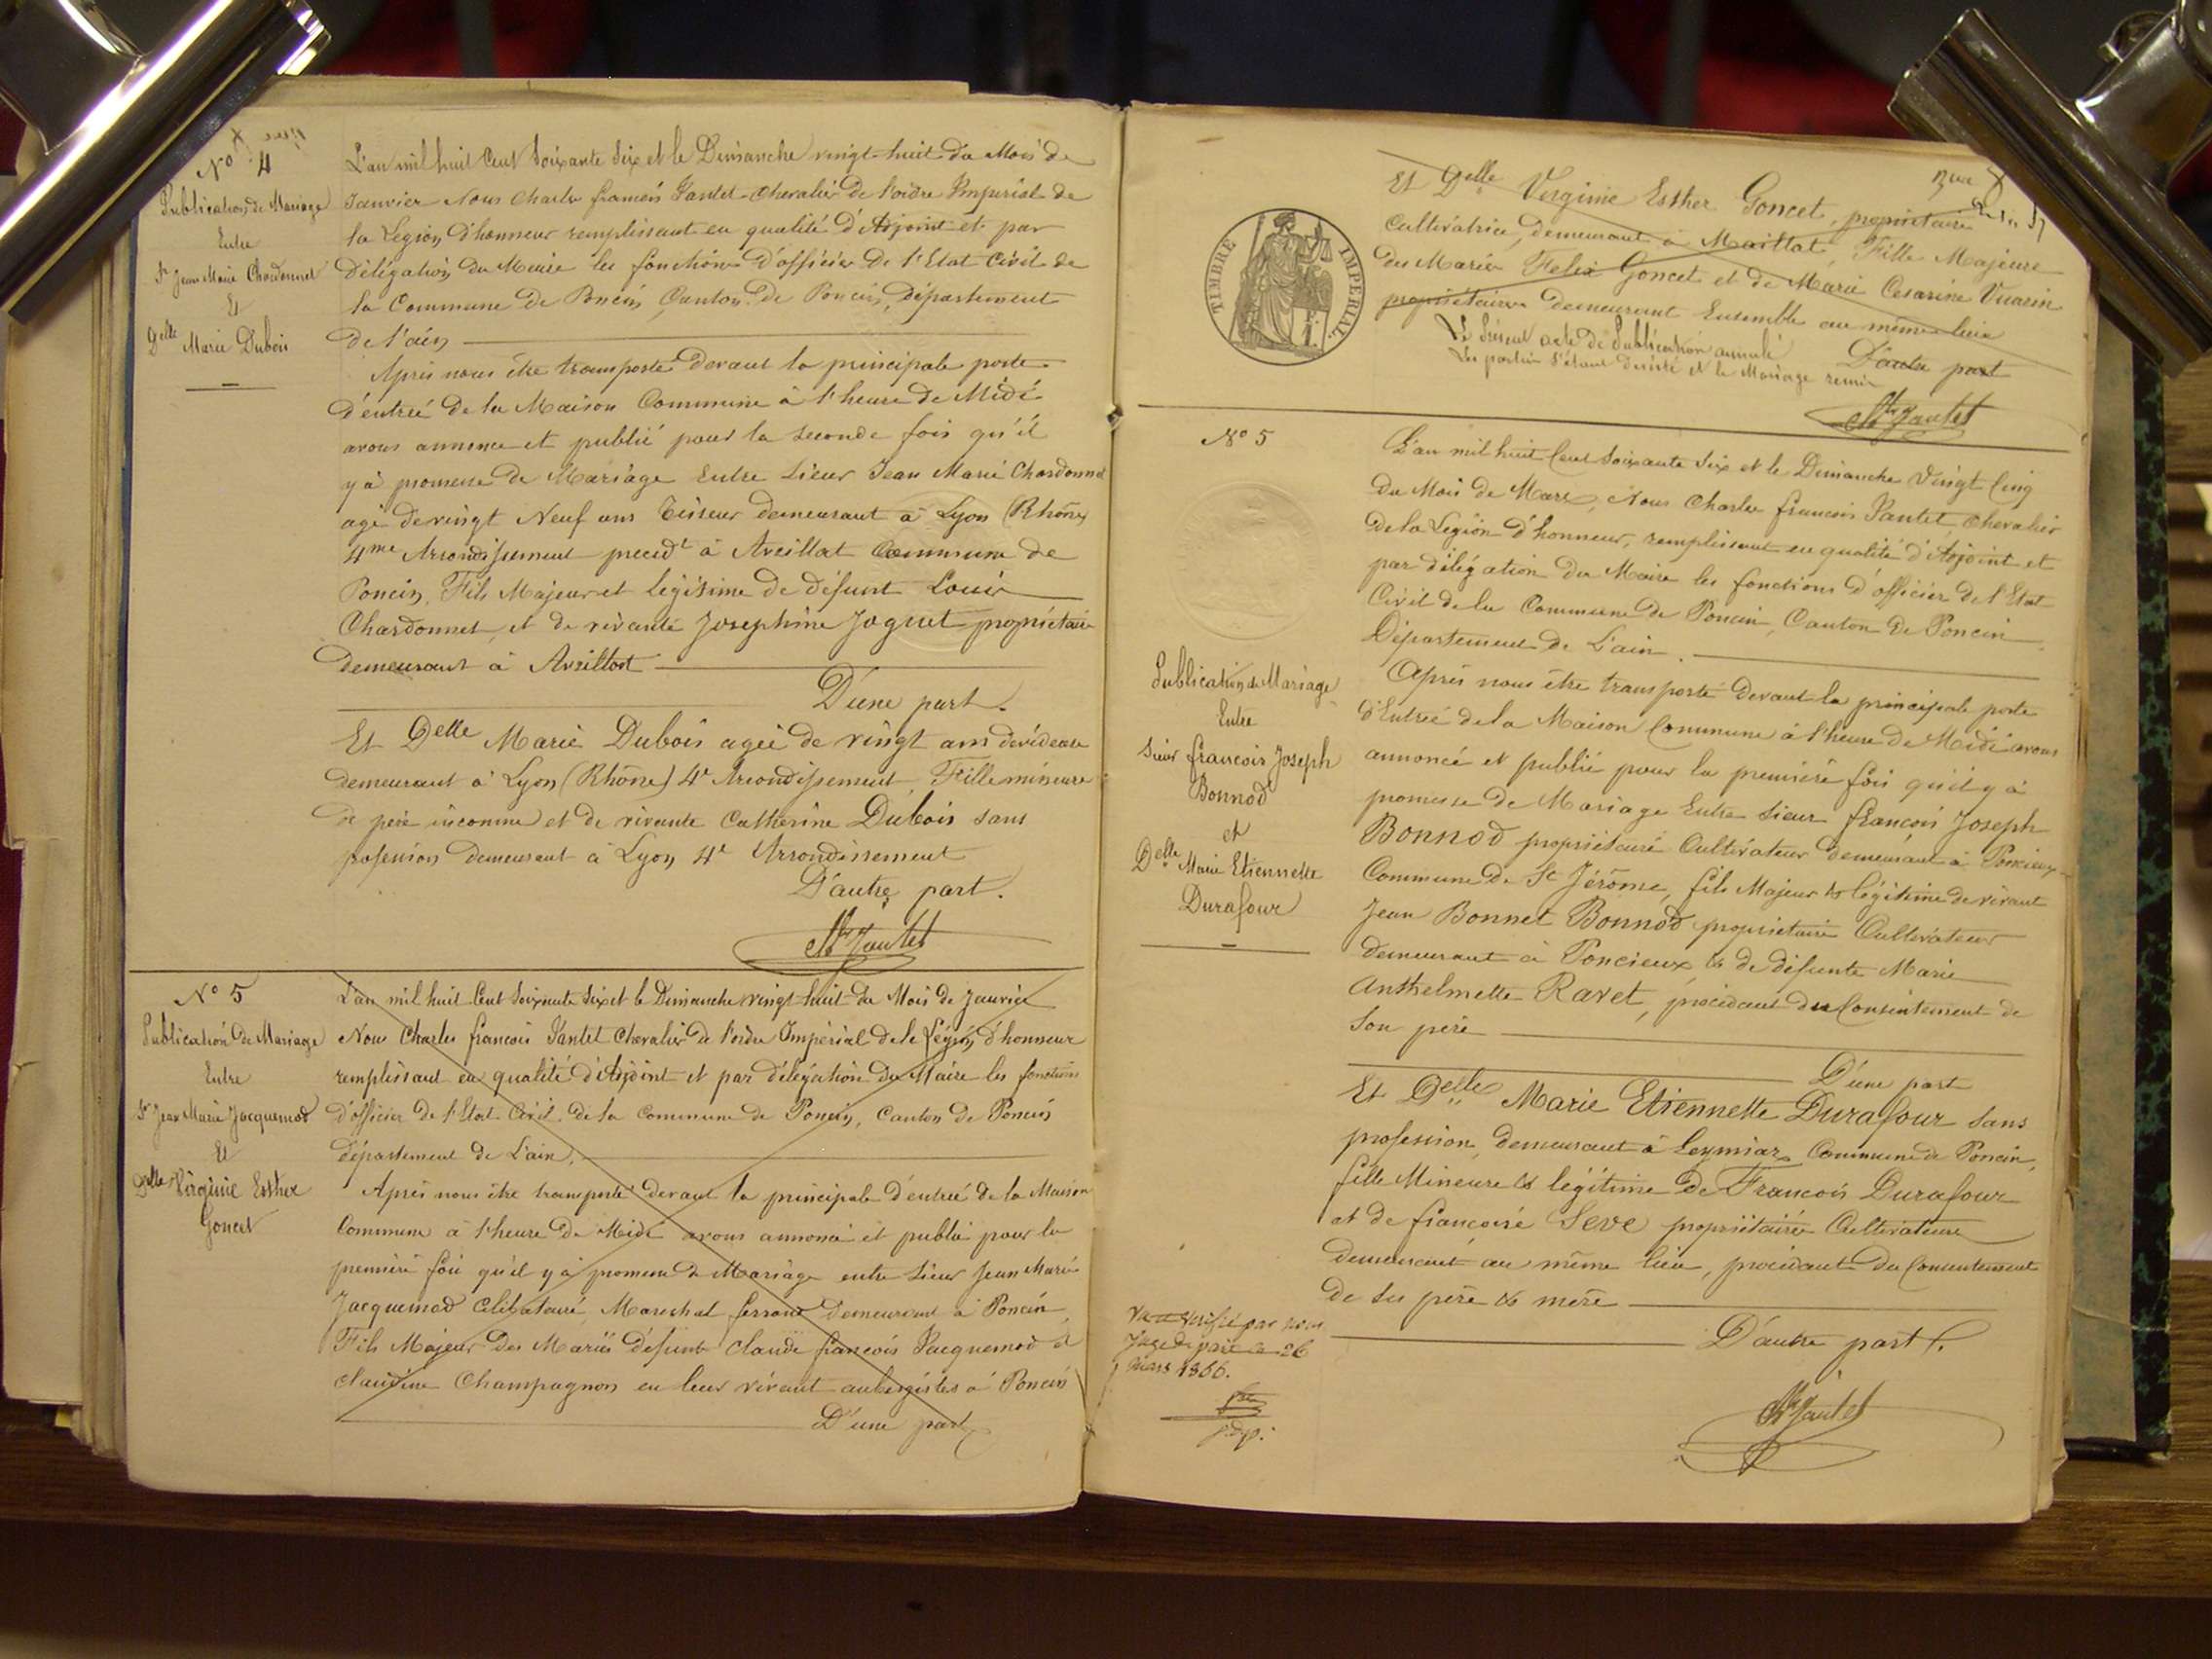 N° 4
Publication de Mariage
Entre
Sr Jean Marie Chardonnet
Et
Delle Marie Dubois
L'an mil huit Cent Soixante Six et le Dimanche vingt-huit du Mois de
Janvier Nous Charles francois Jantet Chevalier de l'ordre Imperial de
la Legion d'honneur remplissant en qualité d'Adjoint et par
Délégation du Maire les fonctions d'officier De l'Etat Civil de
la Commune de Poncin, Canton de Poncin, Département
de l'ain
Après nous être transporté devant la principale porte
d'entrée de la Maison Commune à l'heure de Midi
avons annoncé et publié pour la seconde fois qu'il
y à promesse de Mariage Entre Sieur Jean Marie Chardonnet
agé de vingt Neuf ans Tisseur demeurant à Lyon (Rhône)
4me Arrondissement precedt à Avrillat Commune de
Poncin, Fils Majeur et légitime de défunt Louis
Chardonnet, et de vivante Josephine Joguet propriétaire
demeurant à Avrillat
D'une part.
Et Delle Marie Dubois agée de vingt ans dévideuse
demeurant à Lyon (Rhône) 4e Arrondissement, Fille mineure
de père inconnu et de vivante Catherine Dubois sans
profession demeurant à Lyon 4e Arrondissement
D'autre part.
Ch Jantet
N° 5
Publication de Mariage
Entre
Sr Jean Marie Jacquemod
Et
Delle Virginie Esther
Goncet
L'an mil huit Cent Soixante Six et le Dimanche vingt-huit du Mois de Janvier
Nous Charles francois Jantet Chevalier de l'ordre Impérial de la Légion d'honneur
remplissant en qualité d'Adjoint et par délégation du Maire les fonctions
d'officier de l'Etat Civil de la Commune de Poncin, Canton de Poncin
département de L'ain.
Après nous être transporté devant la principale d'entrée de la Maison
Commune à l'heure de Midi avons annoncé et publié pour la
première fois qu'il y à promesse de Mariage entre Sieur Jean Marie
Jacquemod Celibataire, Marechal ferrant demeurant à Poncin,
Fils Majeur des Mariés défunts Claude françois Jacquemod et
claudine Champagnon en leur vivant aubergistes à Poncin
D'une part
Et Delle Virginie Esther Goncet, propriétaire
Cultivatrice, demeurant à Maillat, Fille Majeure
des Mariés Felix Goncet et de Marie Cesarine Vuarin
propriétaires demeurant Ensemble au même lieu
D'autre part
Le présent acte de Publication annulé
Les parties s'étant désisté et le Mariage remis
Ch Jantet
TIMBRE IMPERIAL
N° 5
Publication de Mariage
Entre
Sieur francois Joseph
Bonnod
et
Delle Marie Etiennette
Durafour
L'an mil huit Cent Soixante Six et le Dimanche Vingt Cinq
du Mois de Mars, Nous Charles francois Jantet Chevalier
de la Légion d'honneur, remplissant en qualité d'Adjoint et
par délégation du Maire les fonctions d'officier de l'Etat
Civil de la Commune de Poncin, Canton de Poncin
Département de L'ain.
Après nous être transporté devant la principale porte
d'Entrée de la Maison Commune à l'heure de Midi avons
annoncé et publié pour la première fois qu'il y à
promesse de Mariage Entre Sieur françois Joseph
Bonnod propriétaire Cultivateur demeurant à Poncieux
Commune de St Jérôme, fils Majeur & légitime de vivant
Jean Bonnet Bonnod propriétaire Cultivateur
demeurant à Poncieux & de défunte Marie
Anthelmette Ravet, procédant du Consentement de
Son père
D'une part
Et Delle Marie Etiennette Durafour sans
profession, demeurant à Leymiaz Commune de Poncin,
fille Mineure & légitime de Francois Durafour
et de francoise Seve propriétaires Cultivateurs
demeurant au même lieu, procédant du Consentement
de ses père & mère
D'autre part.
Ch Jantet
Vu et vérifié par nous
Juge de paix ce 26
mars 1866.
j. d. p.